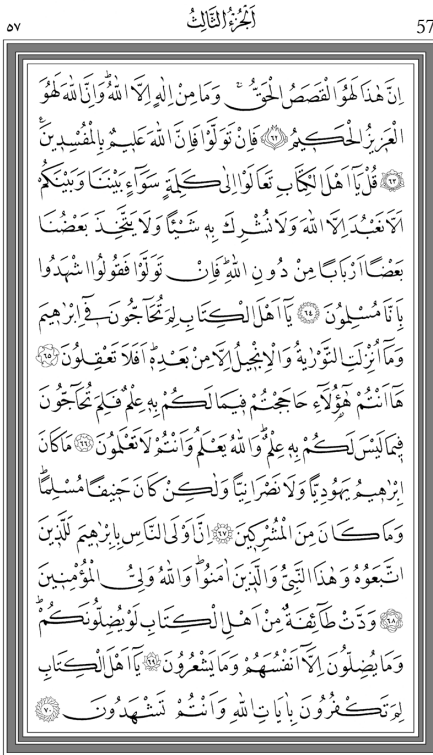 اَلْجُزْءُ الثَّالِثُ
٥٧
57
اِنَّ هٰذَا لَهُوَ الْقَصَصُ الْحَقُّۚ وَمَا مِنْ اِلٰهٍ اِلَّا اللّٰهُۜ وَاِنَّ اللّٰهَ لَهُوَ
الْعَز۪يزُ الْحَك۪يمُ ﴿٦٢﴾ فَاِنْ تَوَلَّوْا فَاِنَّ اللّٰهَ عَل۪يمٌ بِالْمُفْسِد۪ينَ۟
﴿٦٣﴾ قُلْ يَٓا اَهْلَ الْكِتَابِ تَعَالَوْا اِلٰى كَلِمَةٍ سَوَٓاءٍ بَيْنَنَا وَبَيْنَكُمْ
اَلَّا نَعْبُدَ اِلَّا اللّٰهَ وَلَا نُشْرِكَ بِه۪ شَيْـًٔا وَلَا يَتَّخِذَ بَعْضُنَا
بَعْضًا اَرْبَابًا مِنْ دُونِ اللّٰهِۜ فَاِنْ تَوَلَّوْا فَقُولُوا اشْهَدُوا
بِاَنَّا مُسْلِمُونَ ﴿٦٤﴾ يَٓا اَهْلَ الْكِتَابِ لِمَ تُحَٓاجُّونَ ف۪ٓي اِبْرٰه۪يمَ
وَمَٓا اُنْزِلَتِ التَّوْرٰيةُ وَالْاِنْج۪يلُ اِلَّا مِنْ بَعْدِه۪ۜ اَفَلَا تَعْقِلُونَ ﴿٦٥﴾
هَٓا اَنْتُمْ هٰٓؤُ۬لَٓاءِ حَاجَجْتُمْ ف۪يمَا لَكُمْ بِه۪ عِلْمٌ فَلِمَ تُحَٓاجُّونَ
ف۪يمَا لَيْسَ لَكُمْ بِه۪ عِلْمٌۜ وَاللّٰهُ يَعْلَمُ وَاَنْتُمْ لَا تَعْلَمُونَ ﴿٦٦﴾ مَا كَانَ
اِبْرٰه۪يمُ يَهُودِيًّا وَلَا نَصْرَانِيًّا وَلٰكِنْ كَانَ حَن۪يفًا مُسْلِمًاۜ
وَمَا كَانَ مِنَ الْمُشْرِك۪ينَ ﴿٦٧﴾ اِنَّ اَوْلَى النَّاسِ بِاِبْرٰه۪يمَ لَلَّذ۪ينَ
اتَّبَعُوهُ وَهٰذَا النَّبِيُّ وَالَّذ۪ينَ اٰمَنُواۜ وَاللّٰهُ وَلِيُّ الْمُؤْمِن۪ينَ
﴿٦٨﴾ وَدَّتْ طَٓائِفَةٌ مِنْ اَهْلِ الْكِتَابِ لَوْ يُضِلُّونَكُمْۜ
وَمَا يُضِلُّونَ اِلَّٓا اَنْفُسَهُمْ وَمَا يَشْعُرُونَ ﴿٦٩﴾ يَٓا اَهْلَ الْكِتَابِ
لِمَ تَكْفُرُونَ بِاٰيَاتِ اللّٰهِ وَاَنْتُمْ تَشْهَدُونَ ﴿٧٠﴾